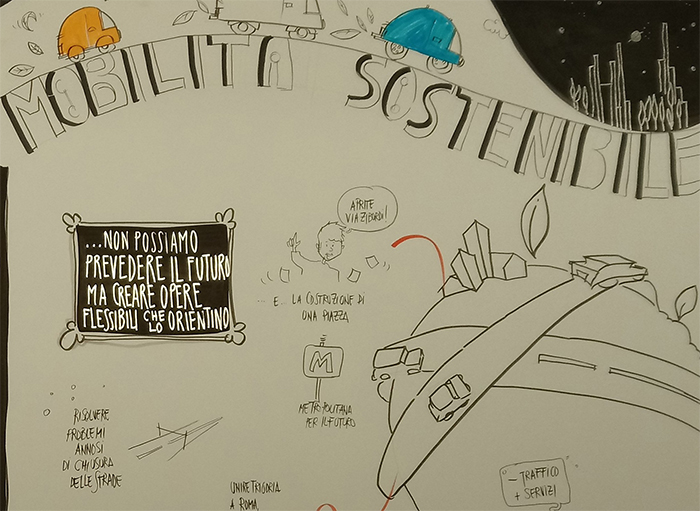 MOBILITÀ SOSTENIBILE
...NON POSSIAMO
PREVEDERE IL FUTURO
MA CREARE OPERE
FLESSIBILI CHE LO ORIENTINO
APRITE
VIA ZIBORDI!
... E... LA COSTRUZIONE DI
UNA PIAZZA
M
METROPOLITANA
PER IL FUTURO
RISOLVERE
PROBLEMI
ANNOSI
DI CHIUSURA
DELLE STRADE
UNIRE TRIGORIA
A ROMA
- TRAFFICO
+ SERVIZI